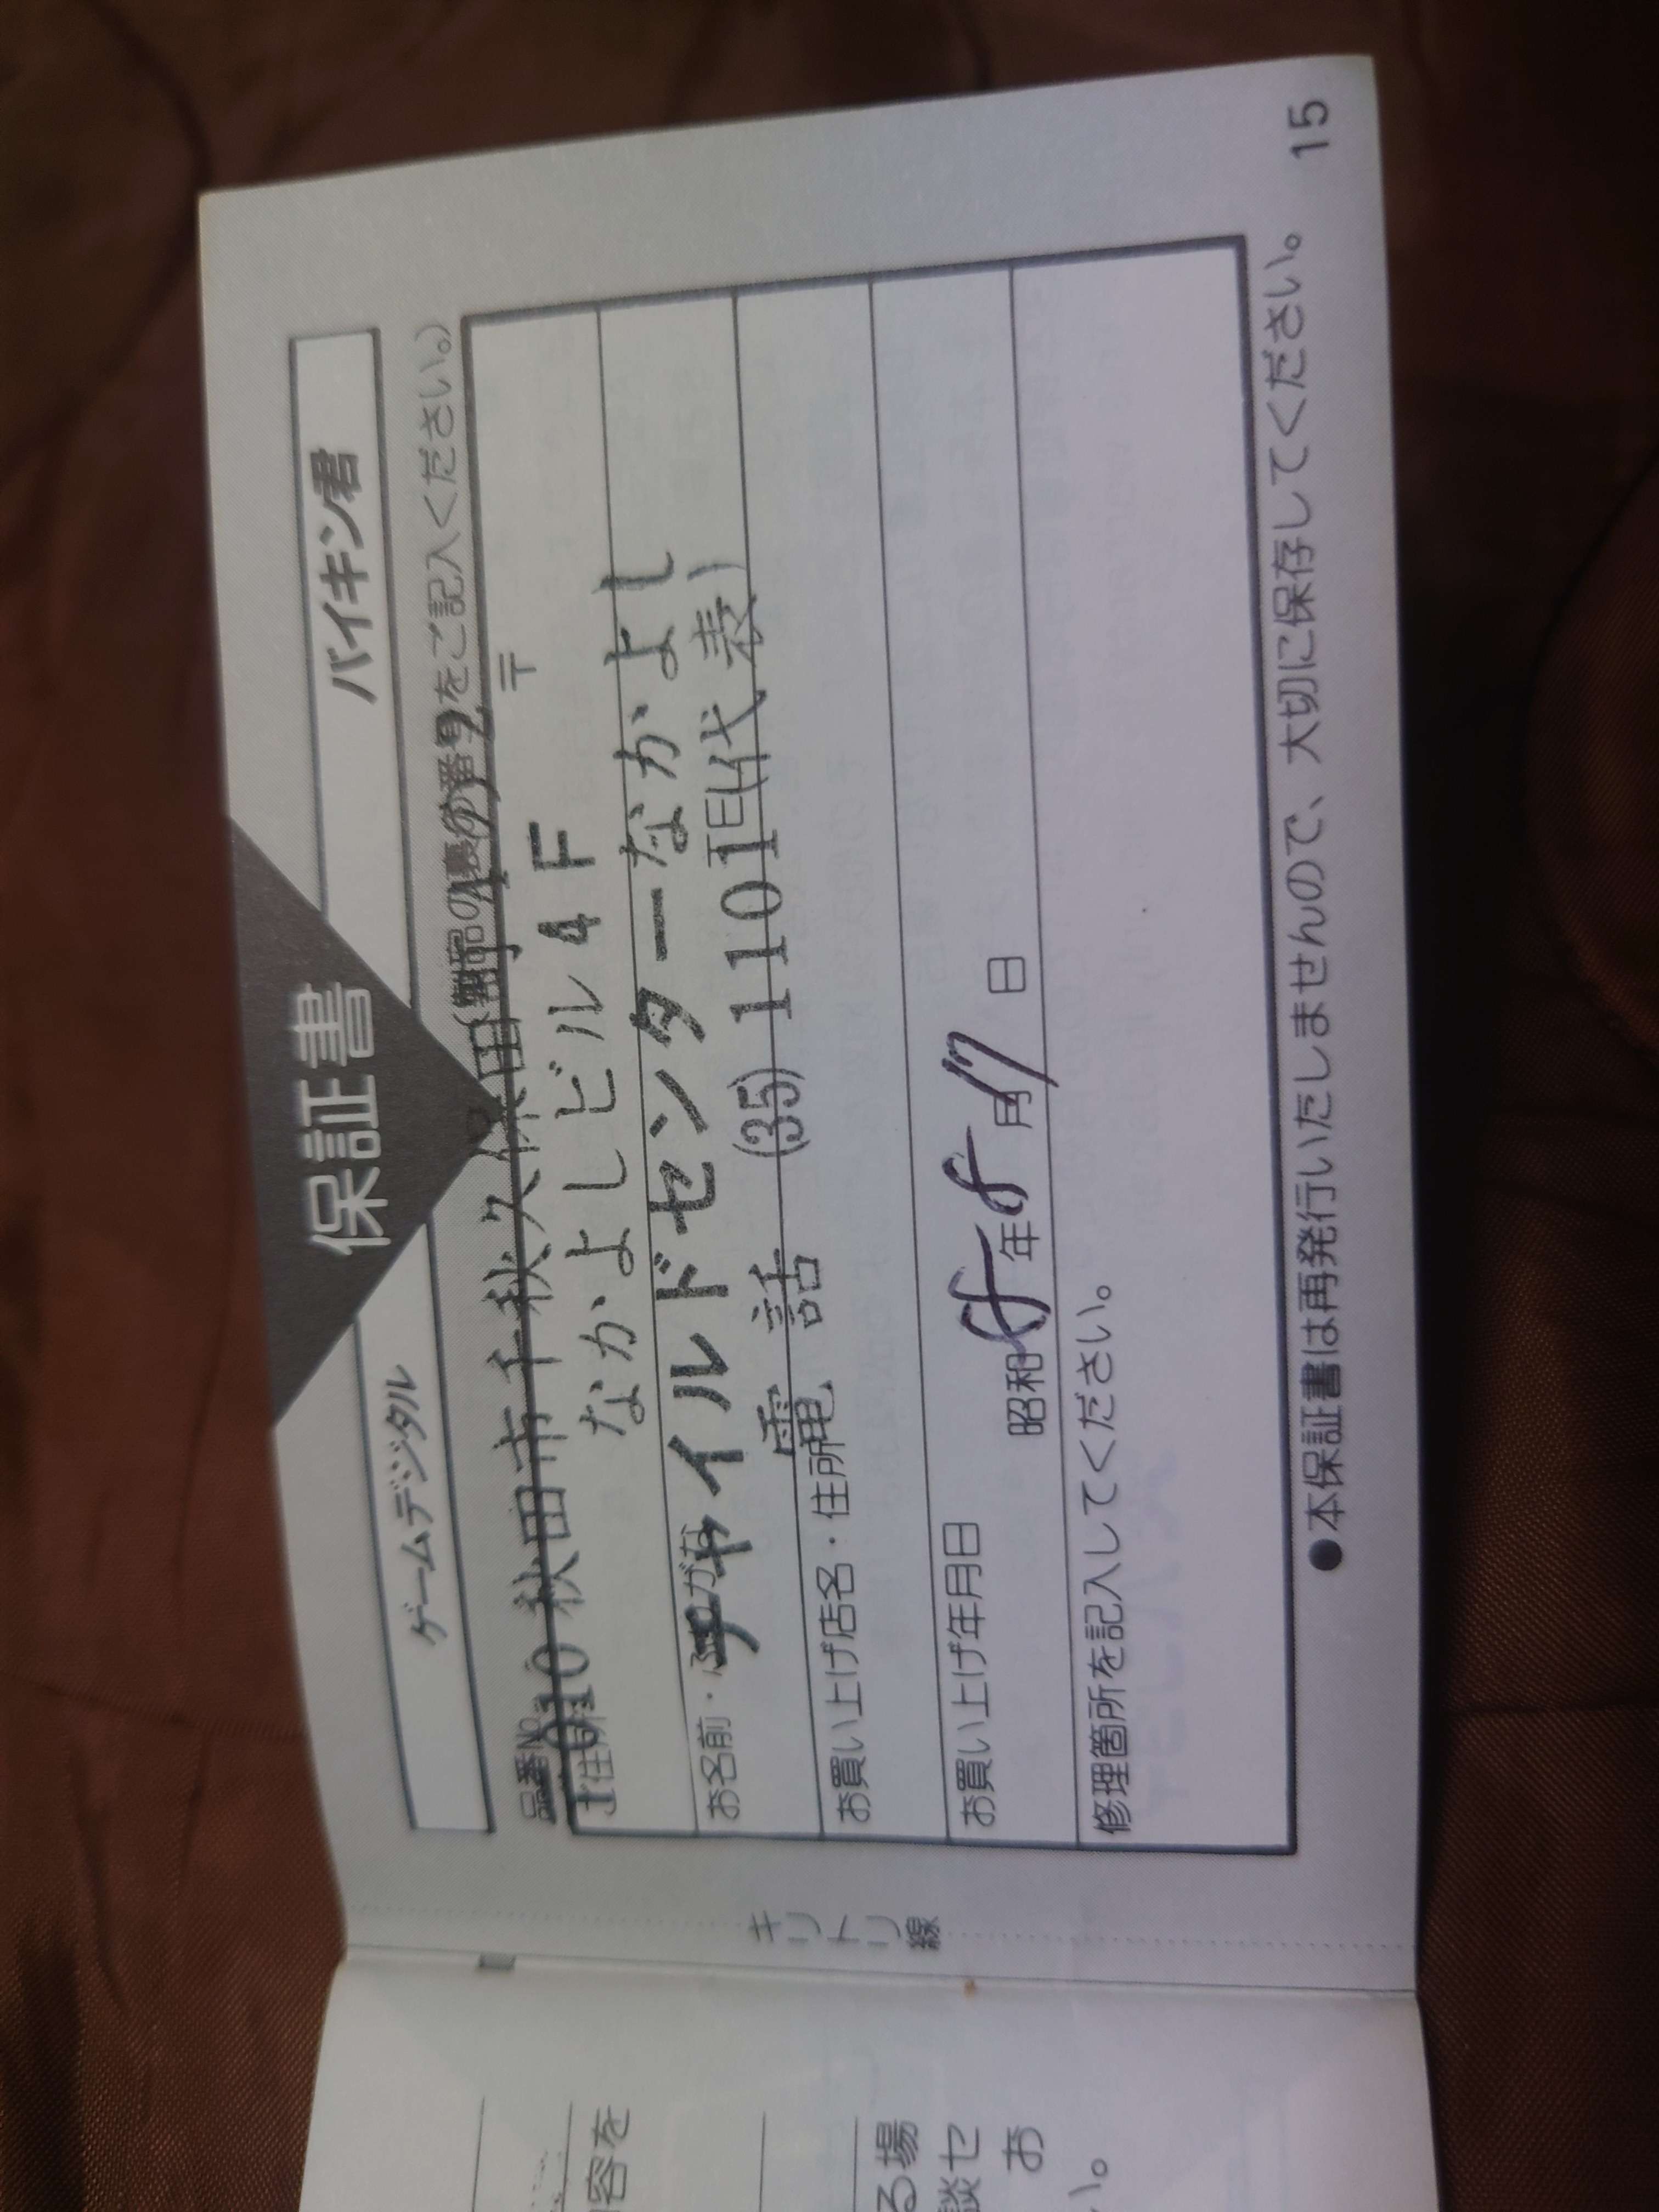 保証書
ゲームデジタル
バイキン君
品番No.
(製品の裏の番号をご記入ください。)
〒
ご住所
010 秋田市千秋久保田町
なかよしビル4F
チャイルドセンターなかよし
電話 (35) 1101(代表)
お名前・ふりがな
印
お買い上げ店名・住所
お買い上げ年月日
昭和58年8月17日
修理箇所を記入してください。
●本保証書は再発行いたしませんので、大切に保存してください。
15
キリトリ線
容を
る場
談セ
お
い。